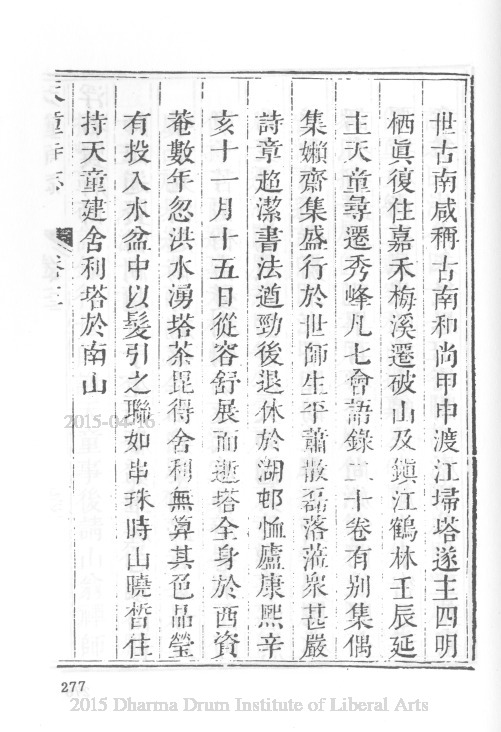 世古南咸稱古南和尚甲申渡江埽塔遂主四明
栖眞復住嘉禾梅溪遷破山及鎭江鶴林壬辰延
主天童尋遷秀峰凡七會語錄十卷有別集偶
集嬾齋集盛行於世師生平蕭散磊落蒞衆甚嚴
詩章超潔書法遒勁後退休於湖邨恤廬康熙辛
亥十一月十五日從容舒展而逝塔全身於西資
菴數年忽洪水湧塔茶毘得舍利無算其色品瑩
有投入水盆中以髮引之聯如串珠時山曉晳住
持天童建舍利塔於南山
2015-04-16
277
2015 Dharma Drum Institute of Liberal Arts